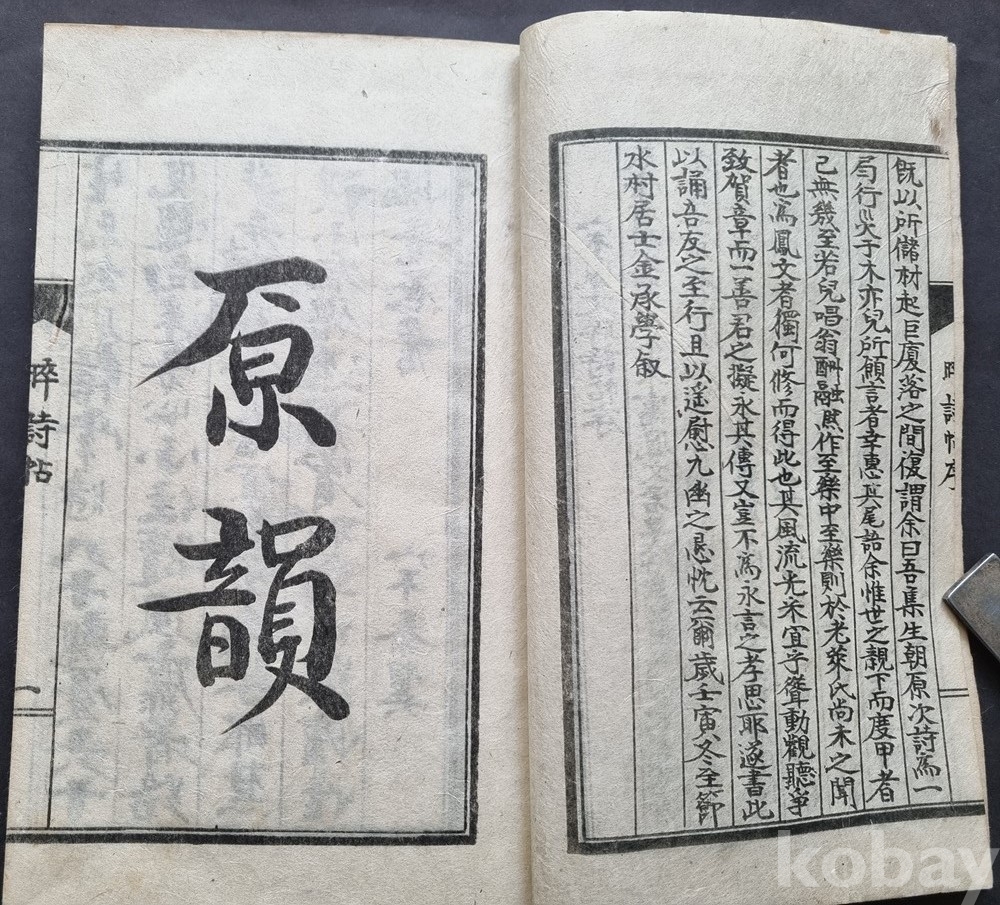 晬詩帖序
旣以所儲材起巨廈落之間復謂余曰吾集生朝原次詩爲一
局行災于木亦兒所願言者幸惠其尾語余惟世之親下而度甲者
已無幾至若兒唱翁酬融然作至樂中至樂則於老萊氏尚未之聞
者也爲鳳文者獨何修而得此也其風流光采宜乎聳動觀聽爭
致賀章而一善君之擬永其傳又豈不爲永言之孝思耶遂書此
以誦吾友之至行且以遥慰九幽之悬忱云爾歲壬寅冬至節
水村居士金承學叙
原韻
晬詩帖
一
kobay